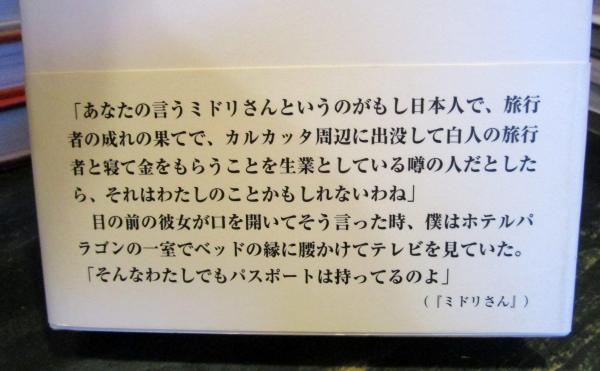 「あなたの言うミドリさんというのがもし日本人で、旅行
者の成れの果てで、カルカッタ周辺に出没して白人の旅行
者と寝て金をもらうことを生業としている噂の人だとした
ら、それはわたしのことかもしれないわね」
目の前の彼女が口を開いてそう言った時、僕はホテルパ
ラゴンの一室でベッドの縁に腰かけてテレビを見ていた。
「そんなわたしでもパスポートは持ってるのよ」
（『ミドリさん』）